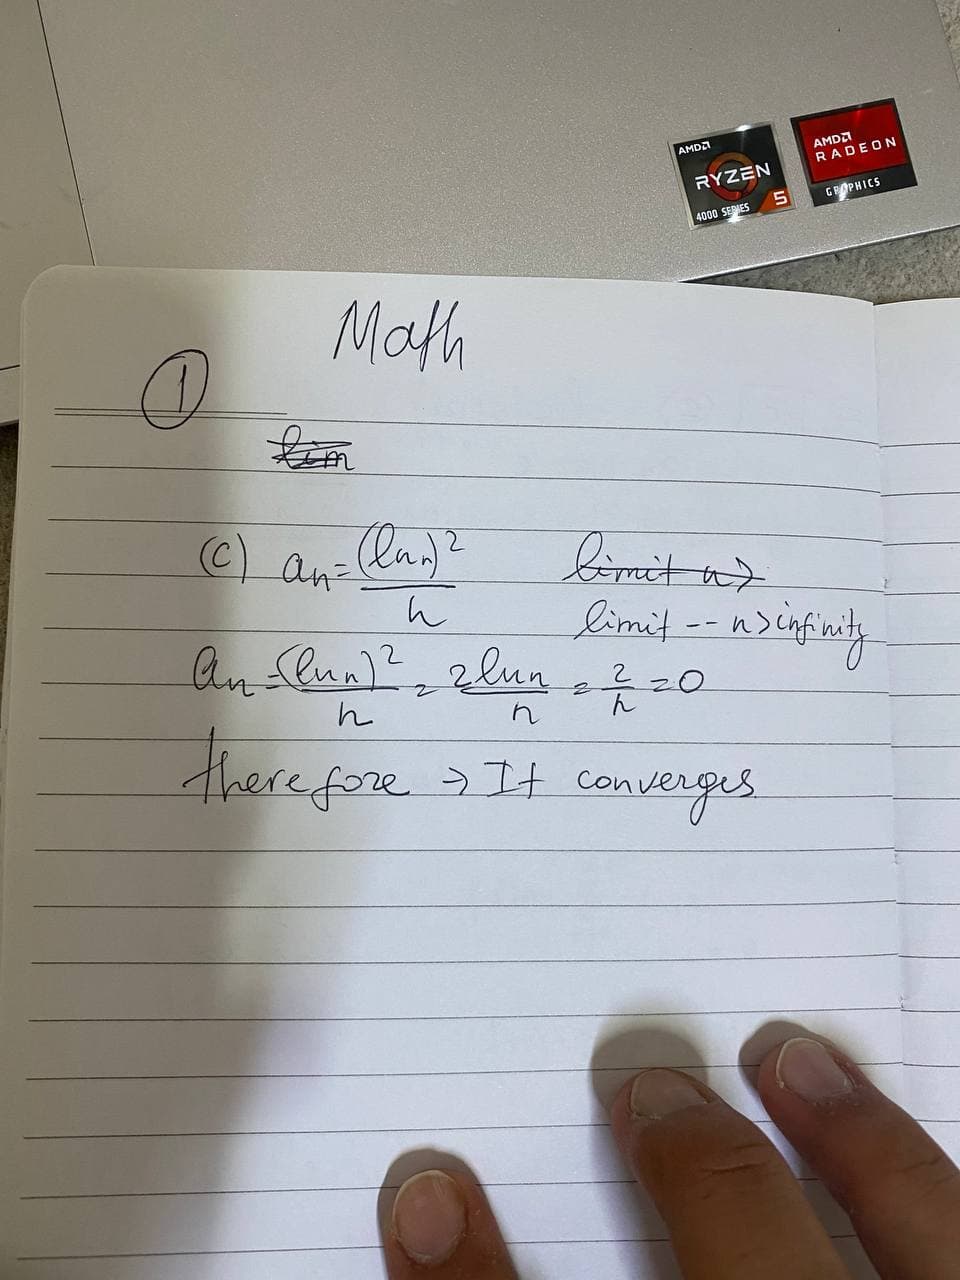 AMD
RYZEN
4000 SERIES 5
AMD
RADEON
GRAPHICS
Math
1
lim
(C) an = (ln n)² / n limit n→
limit -- n→infinity
an = (ln n)² / n = 2 ln n / n = 2 / n = 0
therefore → It converges